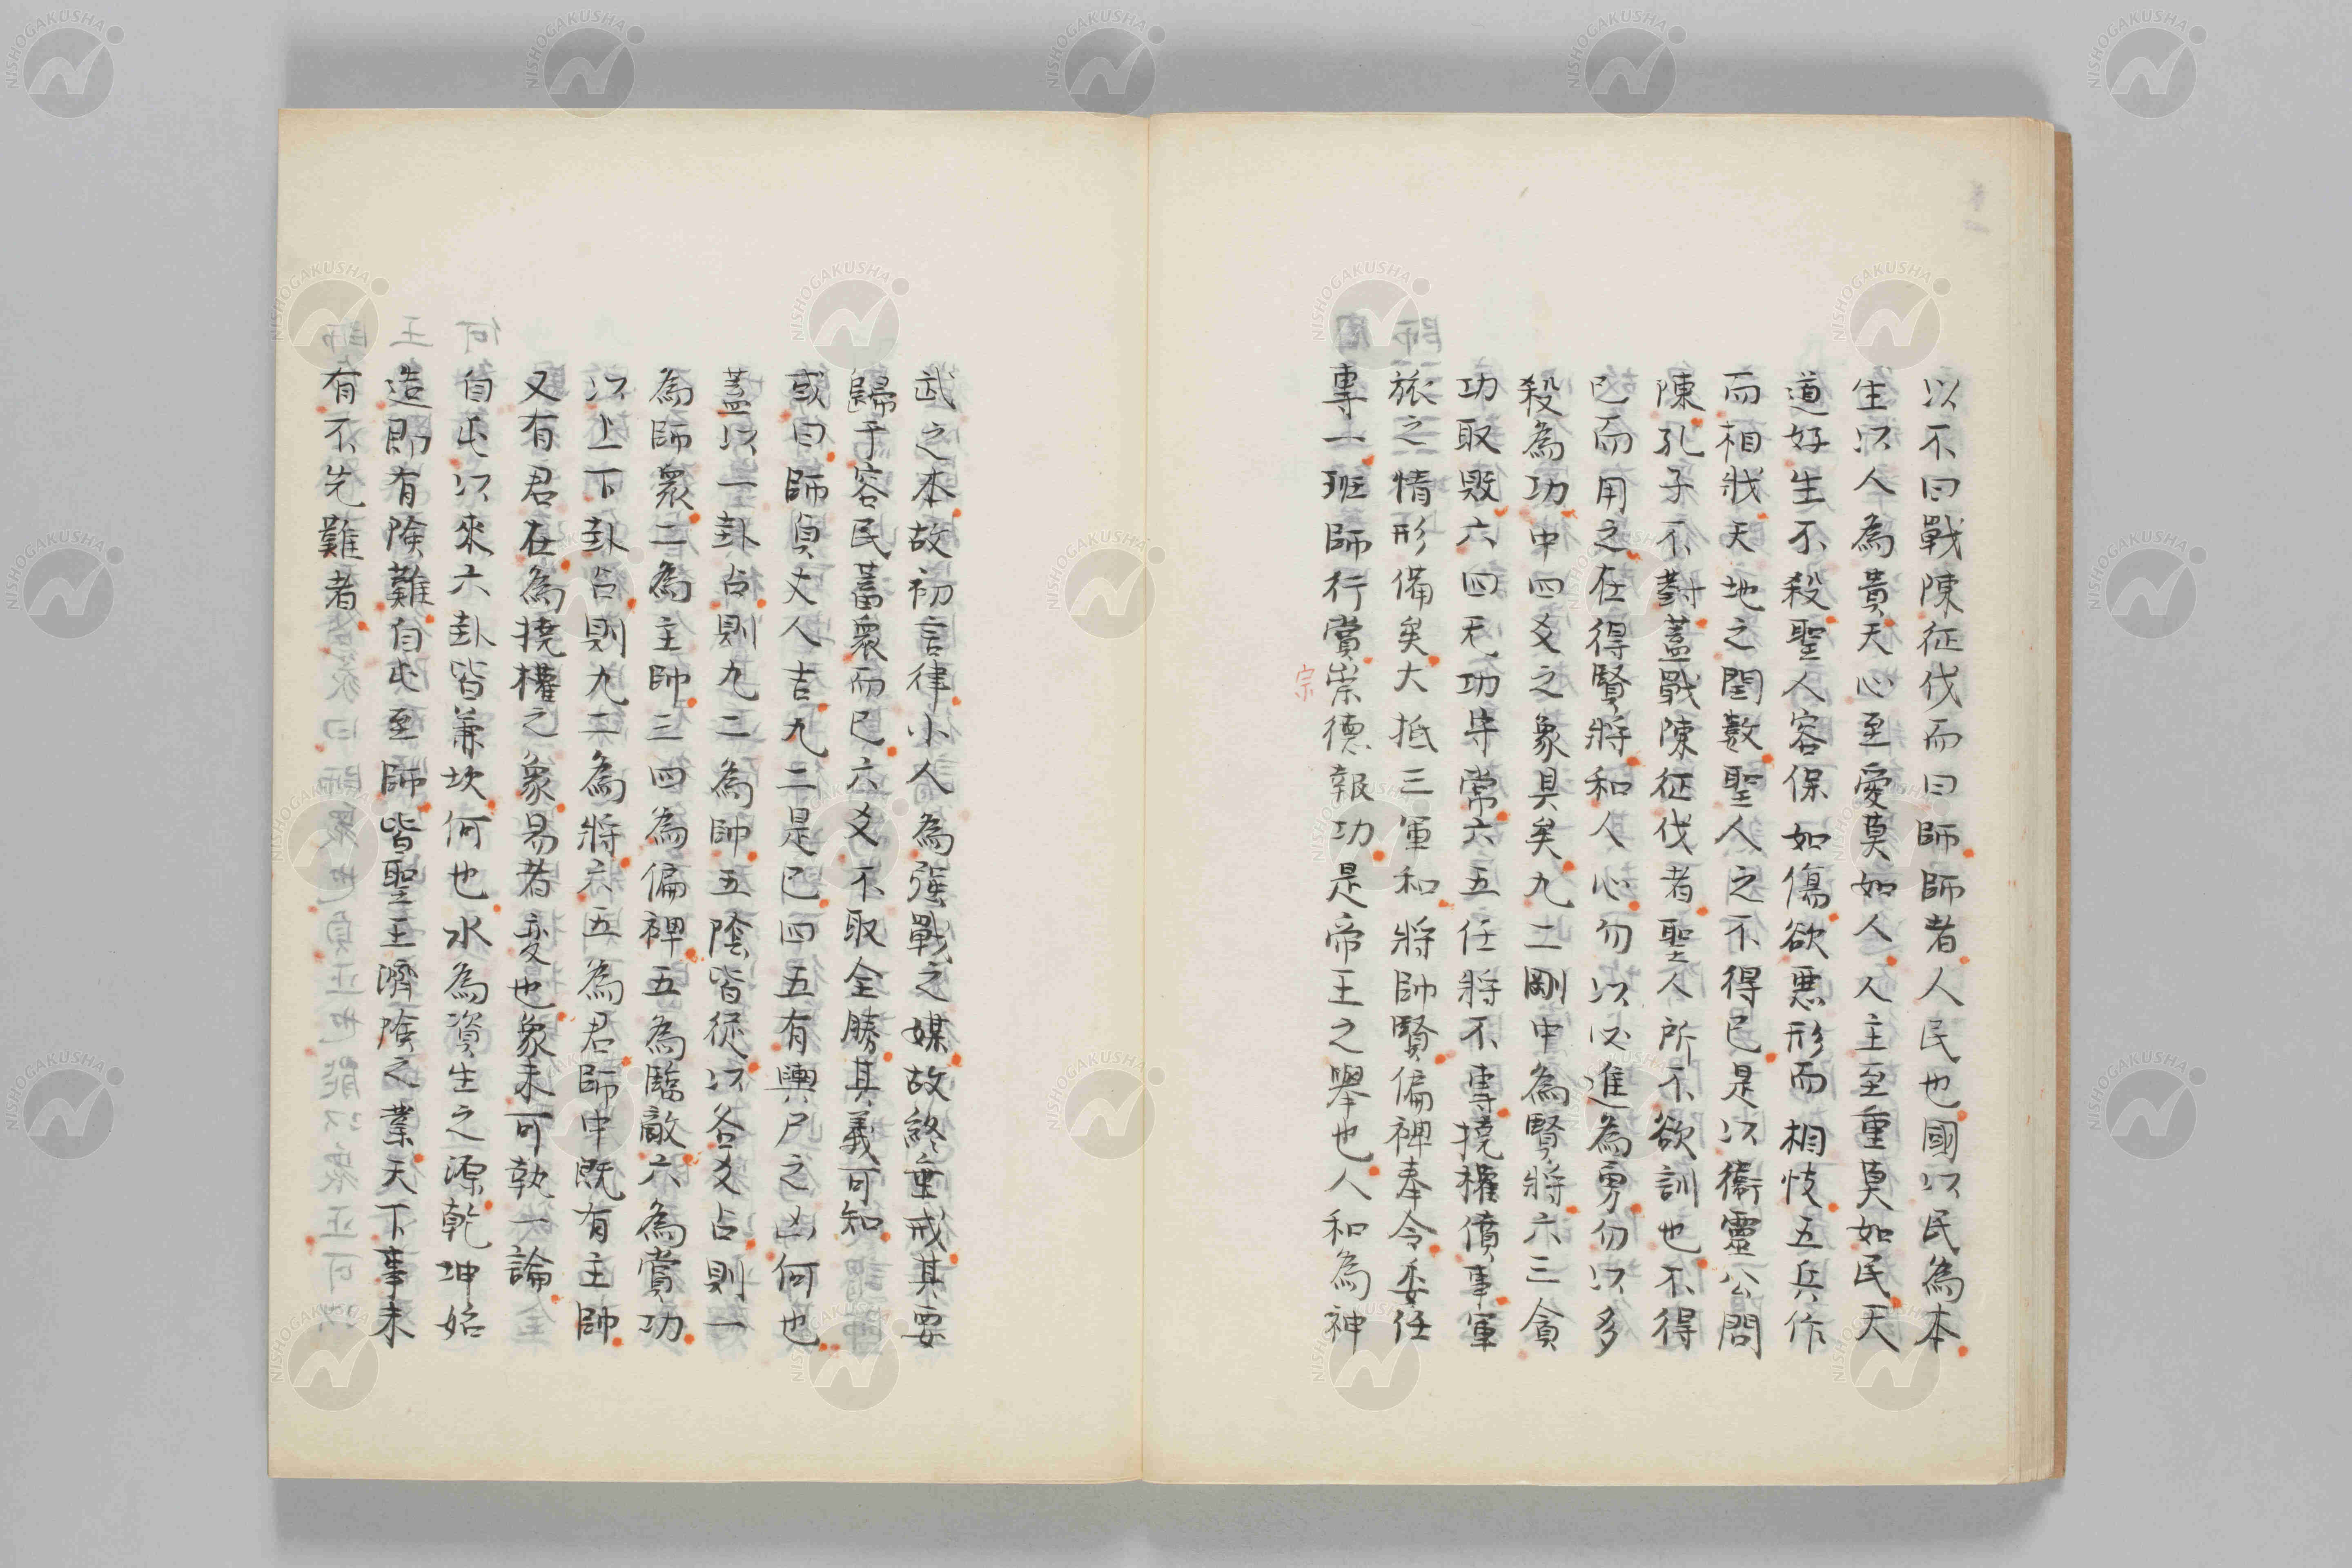 以不曰戰陳征伐而曰師師者人民也國以民為本
生以人為貴天心至愛莫如人人主至重莫如民天
道好生不殺聖人容保如傷欲惡形而相忮五兵作
而相戕天地之閏數聖人之不得已是以衞靈公問
陳孔子不對蓋戰陳征伐者聖人所不欲訓也不得
已而用之在得賢將和人心勿以必進為勇勿以多
殺為功中四爻之象具矣九二剛中為賢將六三貪
功取敗六四无功失常六五任將不專撓權僨事軍
旅之情形備矣大抵三軍和將帥賢偏裨奉令委任
專一班師行賞崇德報功是帝王之舉也人和為神
宗
武之本故初言律小人為强戰之媒故終垂戒其要
歸于容民蓄衆而已六爻不取全勝其義可知
或曰師貞丈人吉九二是已四五有輿尸之凶何也
蓋以一卦占則九二為帥五陰皆從以各爻占則一
為師衆二為主帥三四為偏裨五為臨敵六為賞功
以上下卦占則九二為將六五為君師中既有主帥
又有君在為撓權之象易者変也象未可執一論
自屯以來六卦皆兼坎何也水為資生之源乾坤始
造即有険難自屯至師皆聖王濟険之業天下事未
有不先難者
NISHOGAKUSHA